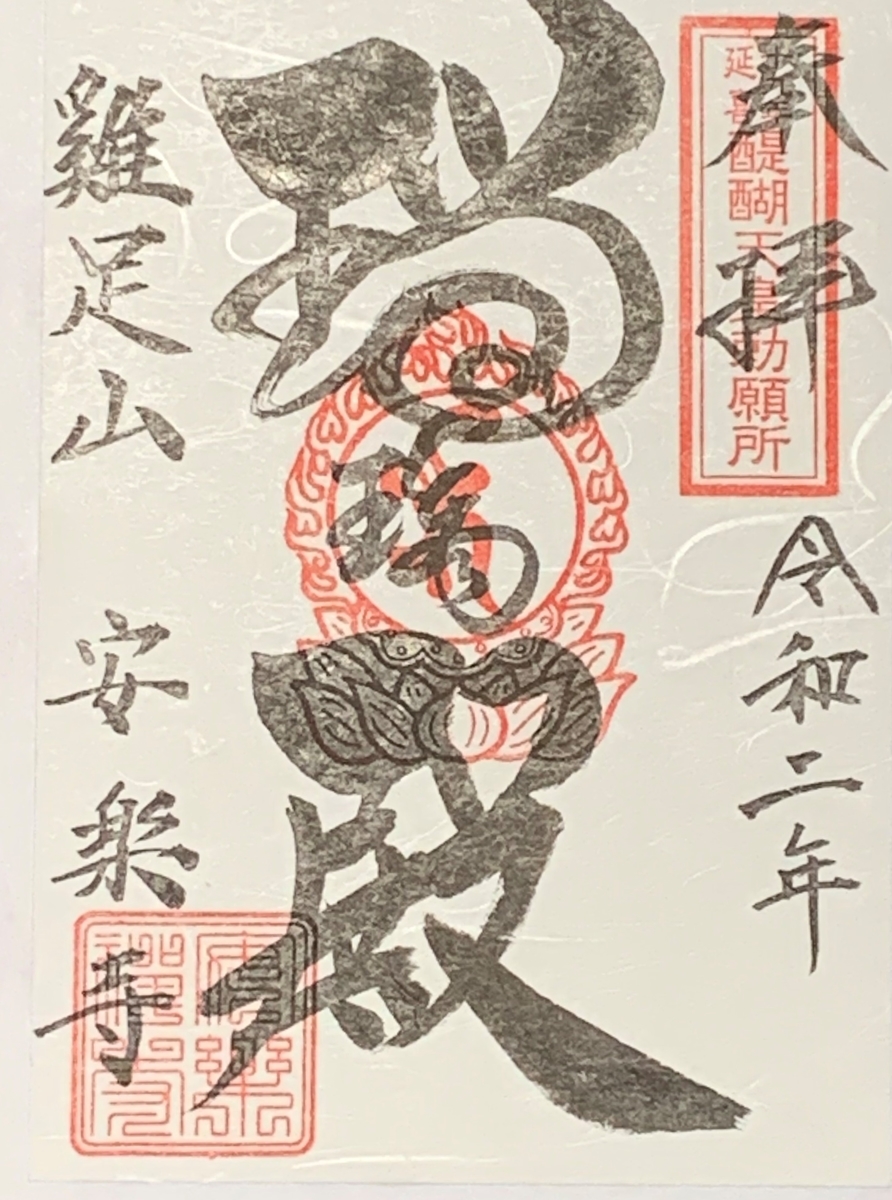 奉拝
醍醐天皇勅願所
令和二年
瑠璃殿
雞足山 安楽寺